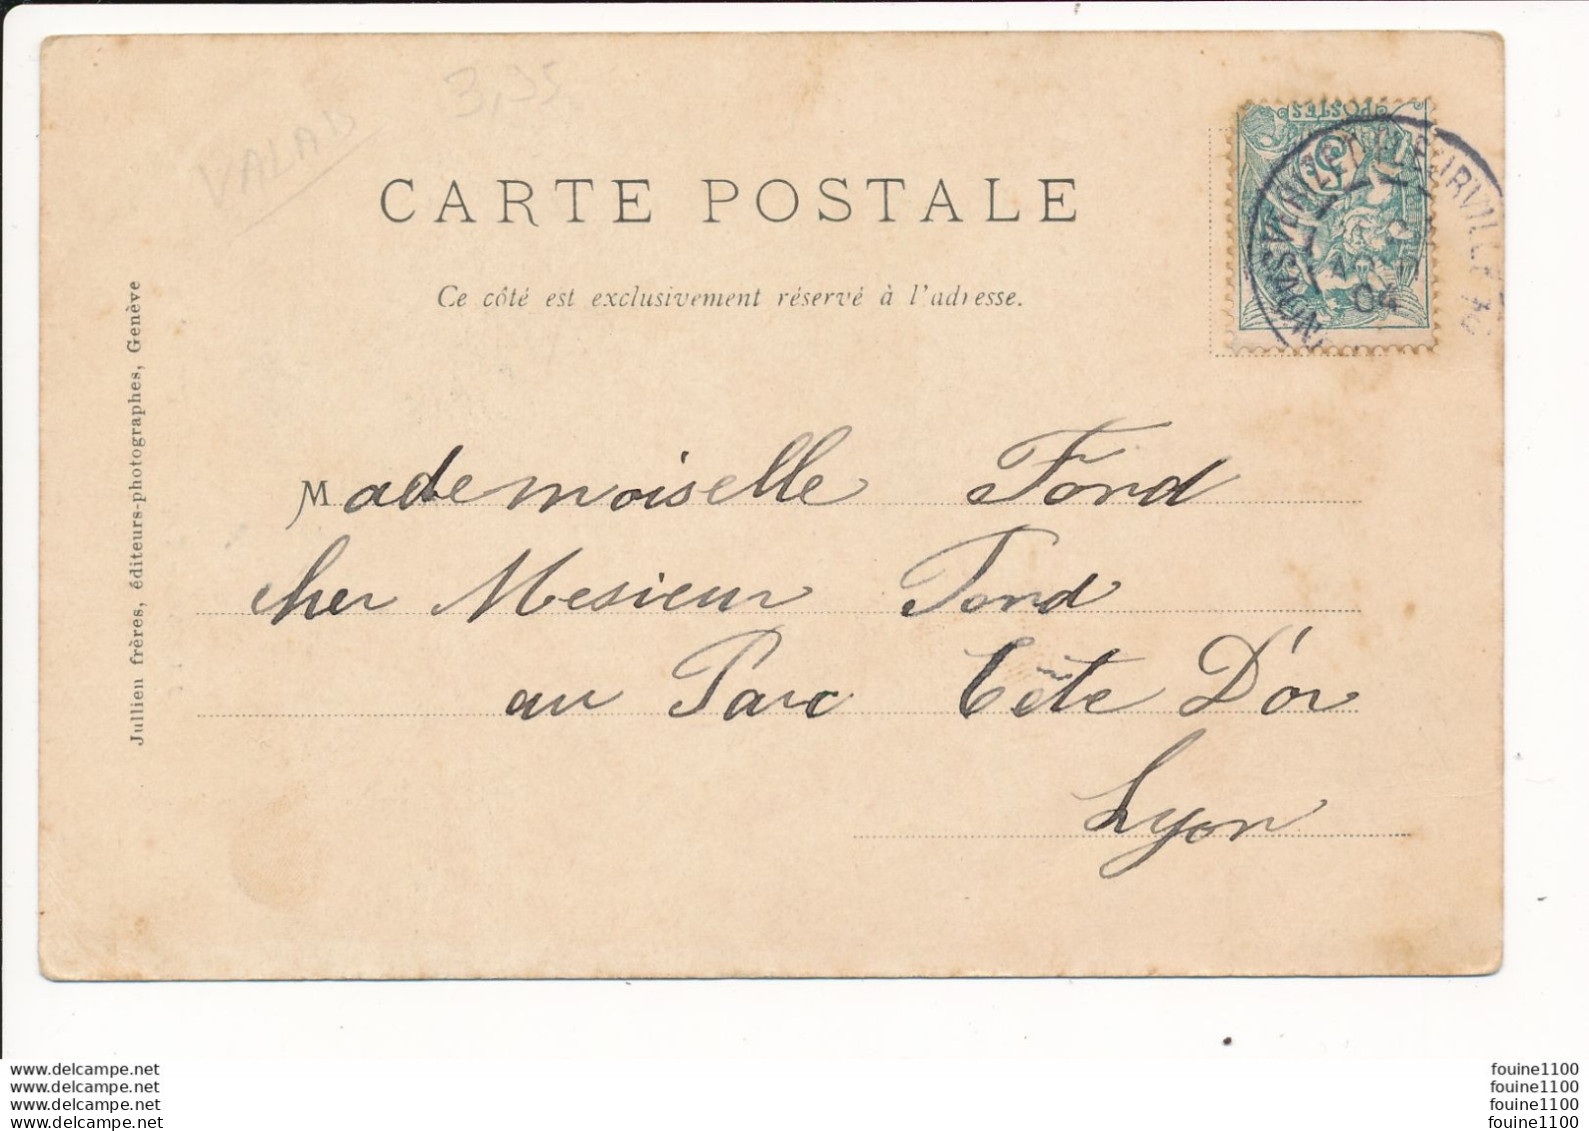 VALAIS
3,95
POSTES
5
04
CARTE POSTALE
Ce côté est exclusivement réservé à l'adresse.
Jullien frères, éditeurs-photographes, Genève
Mademoiselle Fond
cher Mesieur Fond
au Parc Tête D'or
Lyon
www.delcampe.net
www.delcampe.net
www.delcampe.net
www.delcampe.net
fouine1100
fouine1100
fouine1100
fouine1100